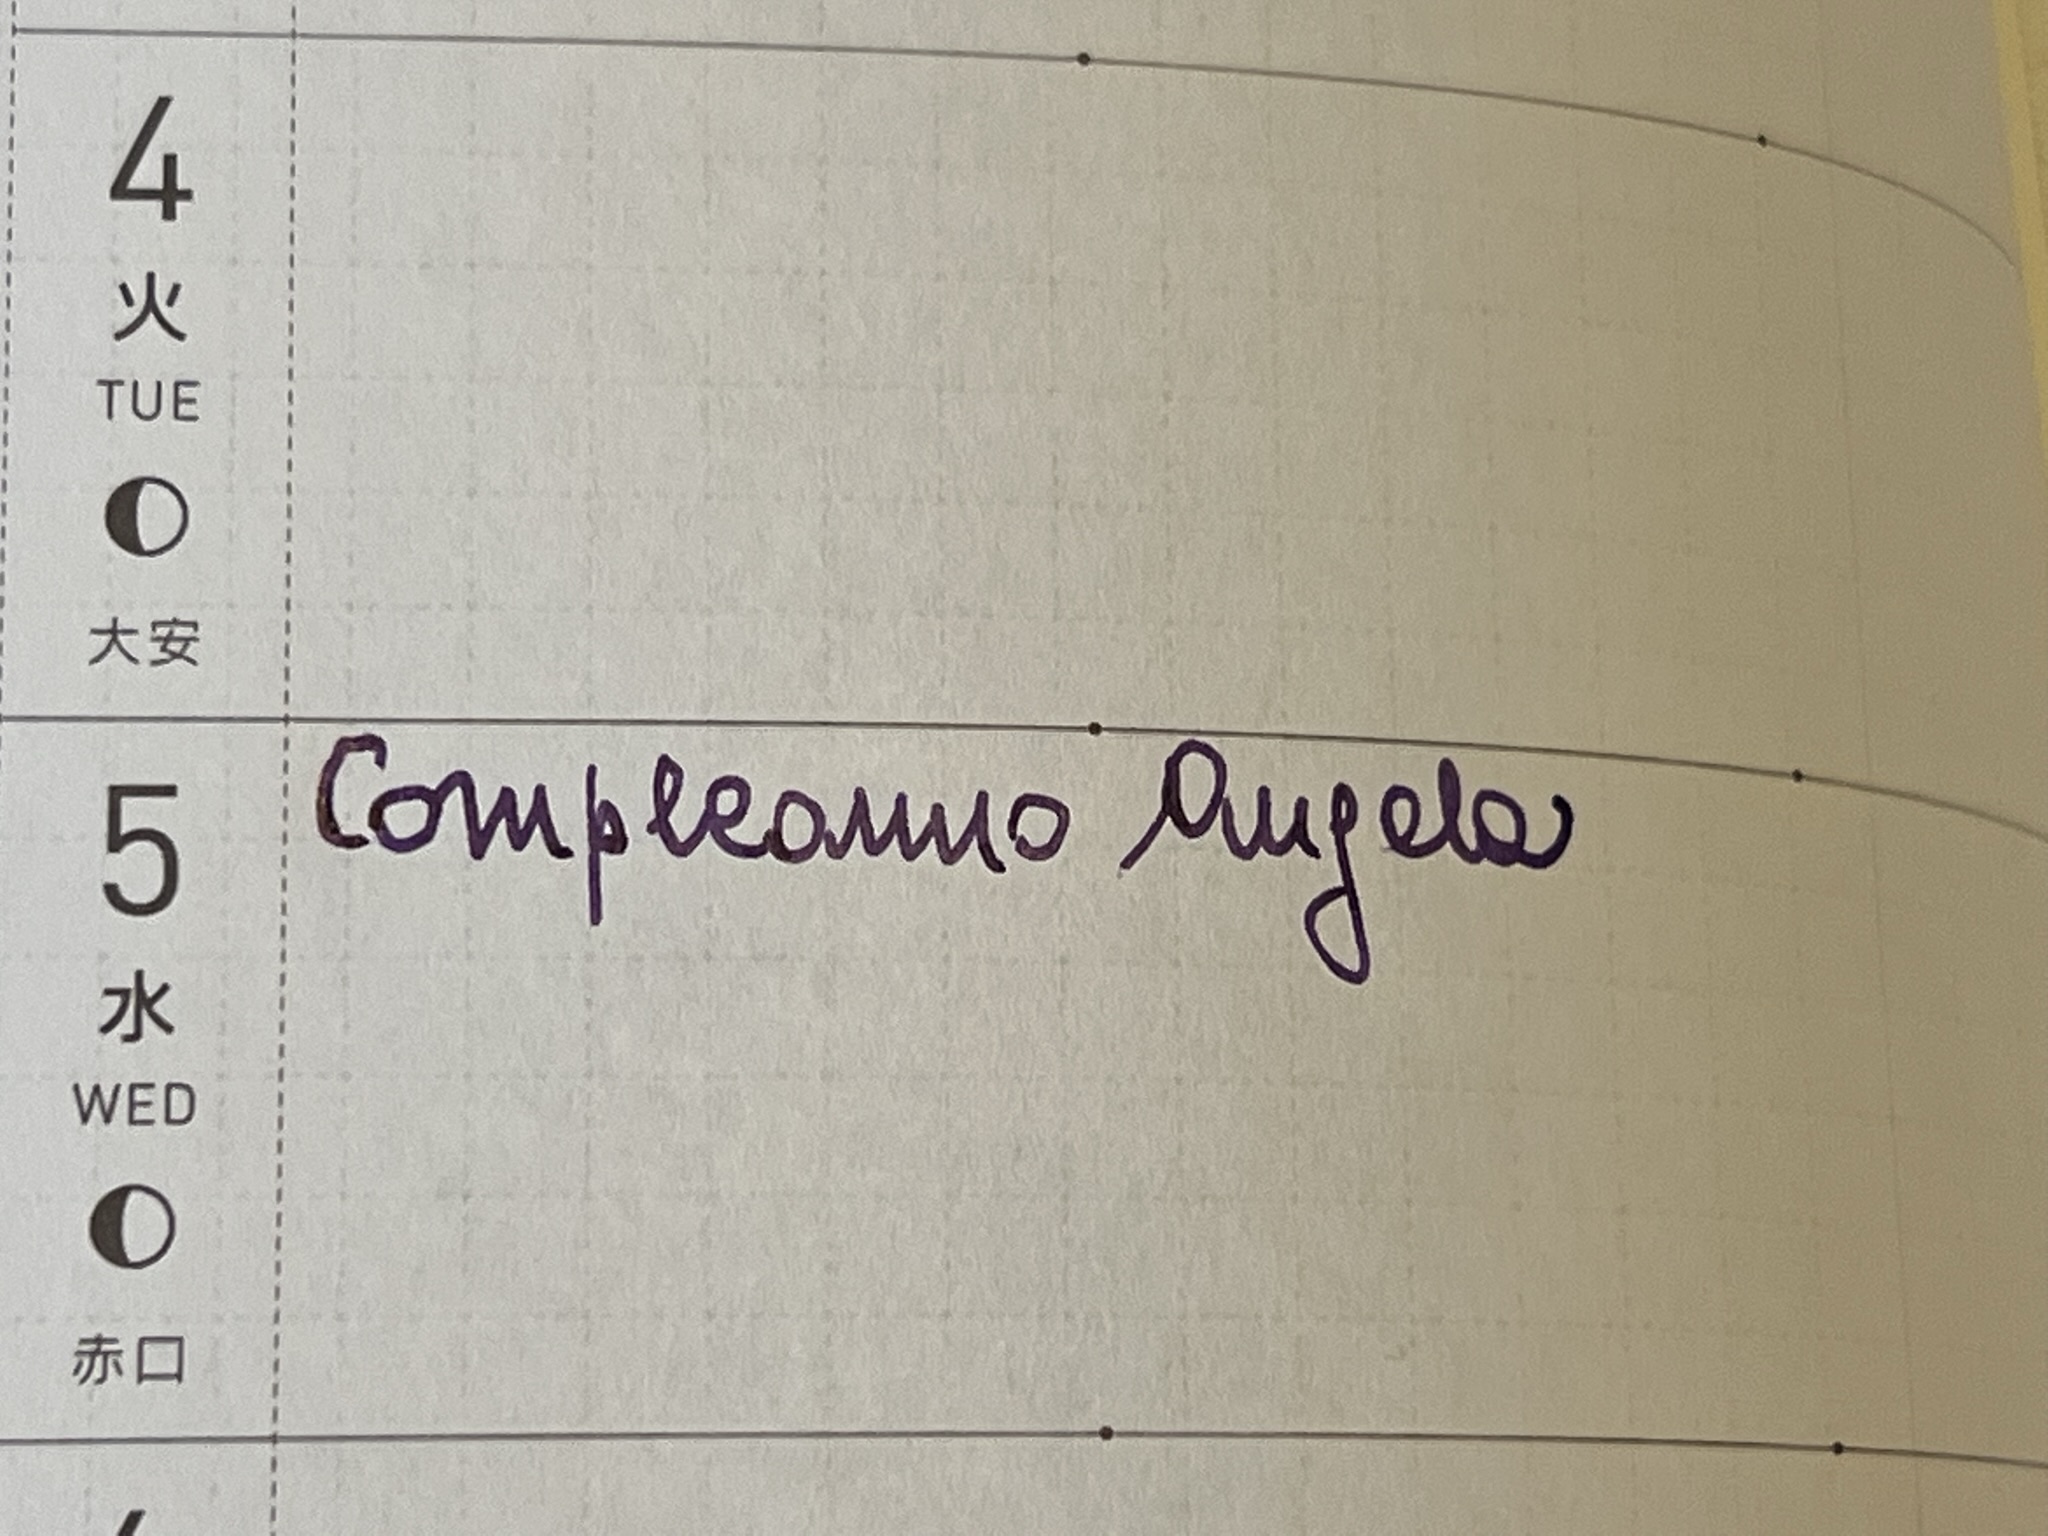 4
火
TUE
大安
5
水
WED
赤口
Compleanno Angela